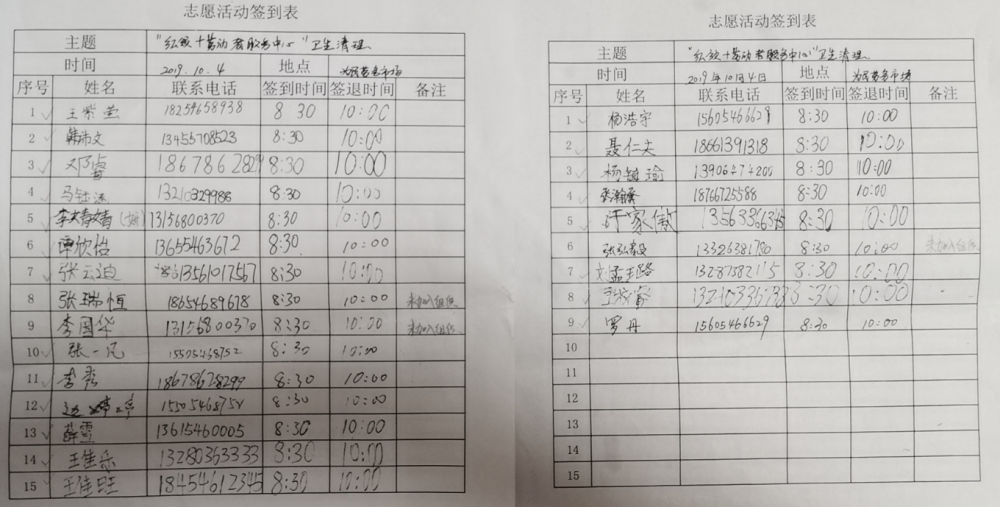 志愿活动签到表
主题 "红敛+劳动者服务中心"卫生清理
时间 2019.10.4 地点 为民劳务市场
序号 姓名 联系电话 签到时间 签退时间 备注
1 18259658938 8 30 10:00
2 韩沛文 13455708523 8:30 10:00
3 邓睿 18678628299 8:30 10:00
4 13210329988 8:30 10:00
5 13156800370 8:30 10:00
6 谭欣怡 13655463672 8:30 10:00
7 张云迪 13561017567 8:30 10:00
8 张瑞恒 18654689678 8:30 10:00 未加入组织
9 李国华 13156800370 8:30 10:00 未加入组织
10 张一凡 15505468752 8:30 10:00
11 李秀 18678628299 8:30 10:00
12 15505468752 8:30 10:00
13 薛雪 13615460005 8:30 10:00
14 王佳乐 13280363333 8:30 10:00
15 王佳旺 18454612345 8:30 10:00
志愿活动签到表
主题 "红敛+劳动者服务中心"卫生清理
时间 2019年10月4日 地点 为民劳务市场
序号 姓名 联系电话 签到时间 签退时间 备注
1 杨浩宇 15605466629 8:30 10:00
2 聂仁杰 18661391318 8:30 10:00
3 杨毓瑜 13906474200 8:30 10:00
4 18766725588 8:30 10:00
5 许家傲 8:30 10:00
6 13326381780 8:30 10:00 未加入组织
7 刘孟璐 13287582115 8:30 10:00
8 8:30 10:00
9 罗丹 15605466629 8:30 10:00
10
11
12
13
14
15